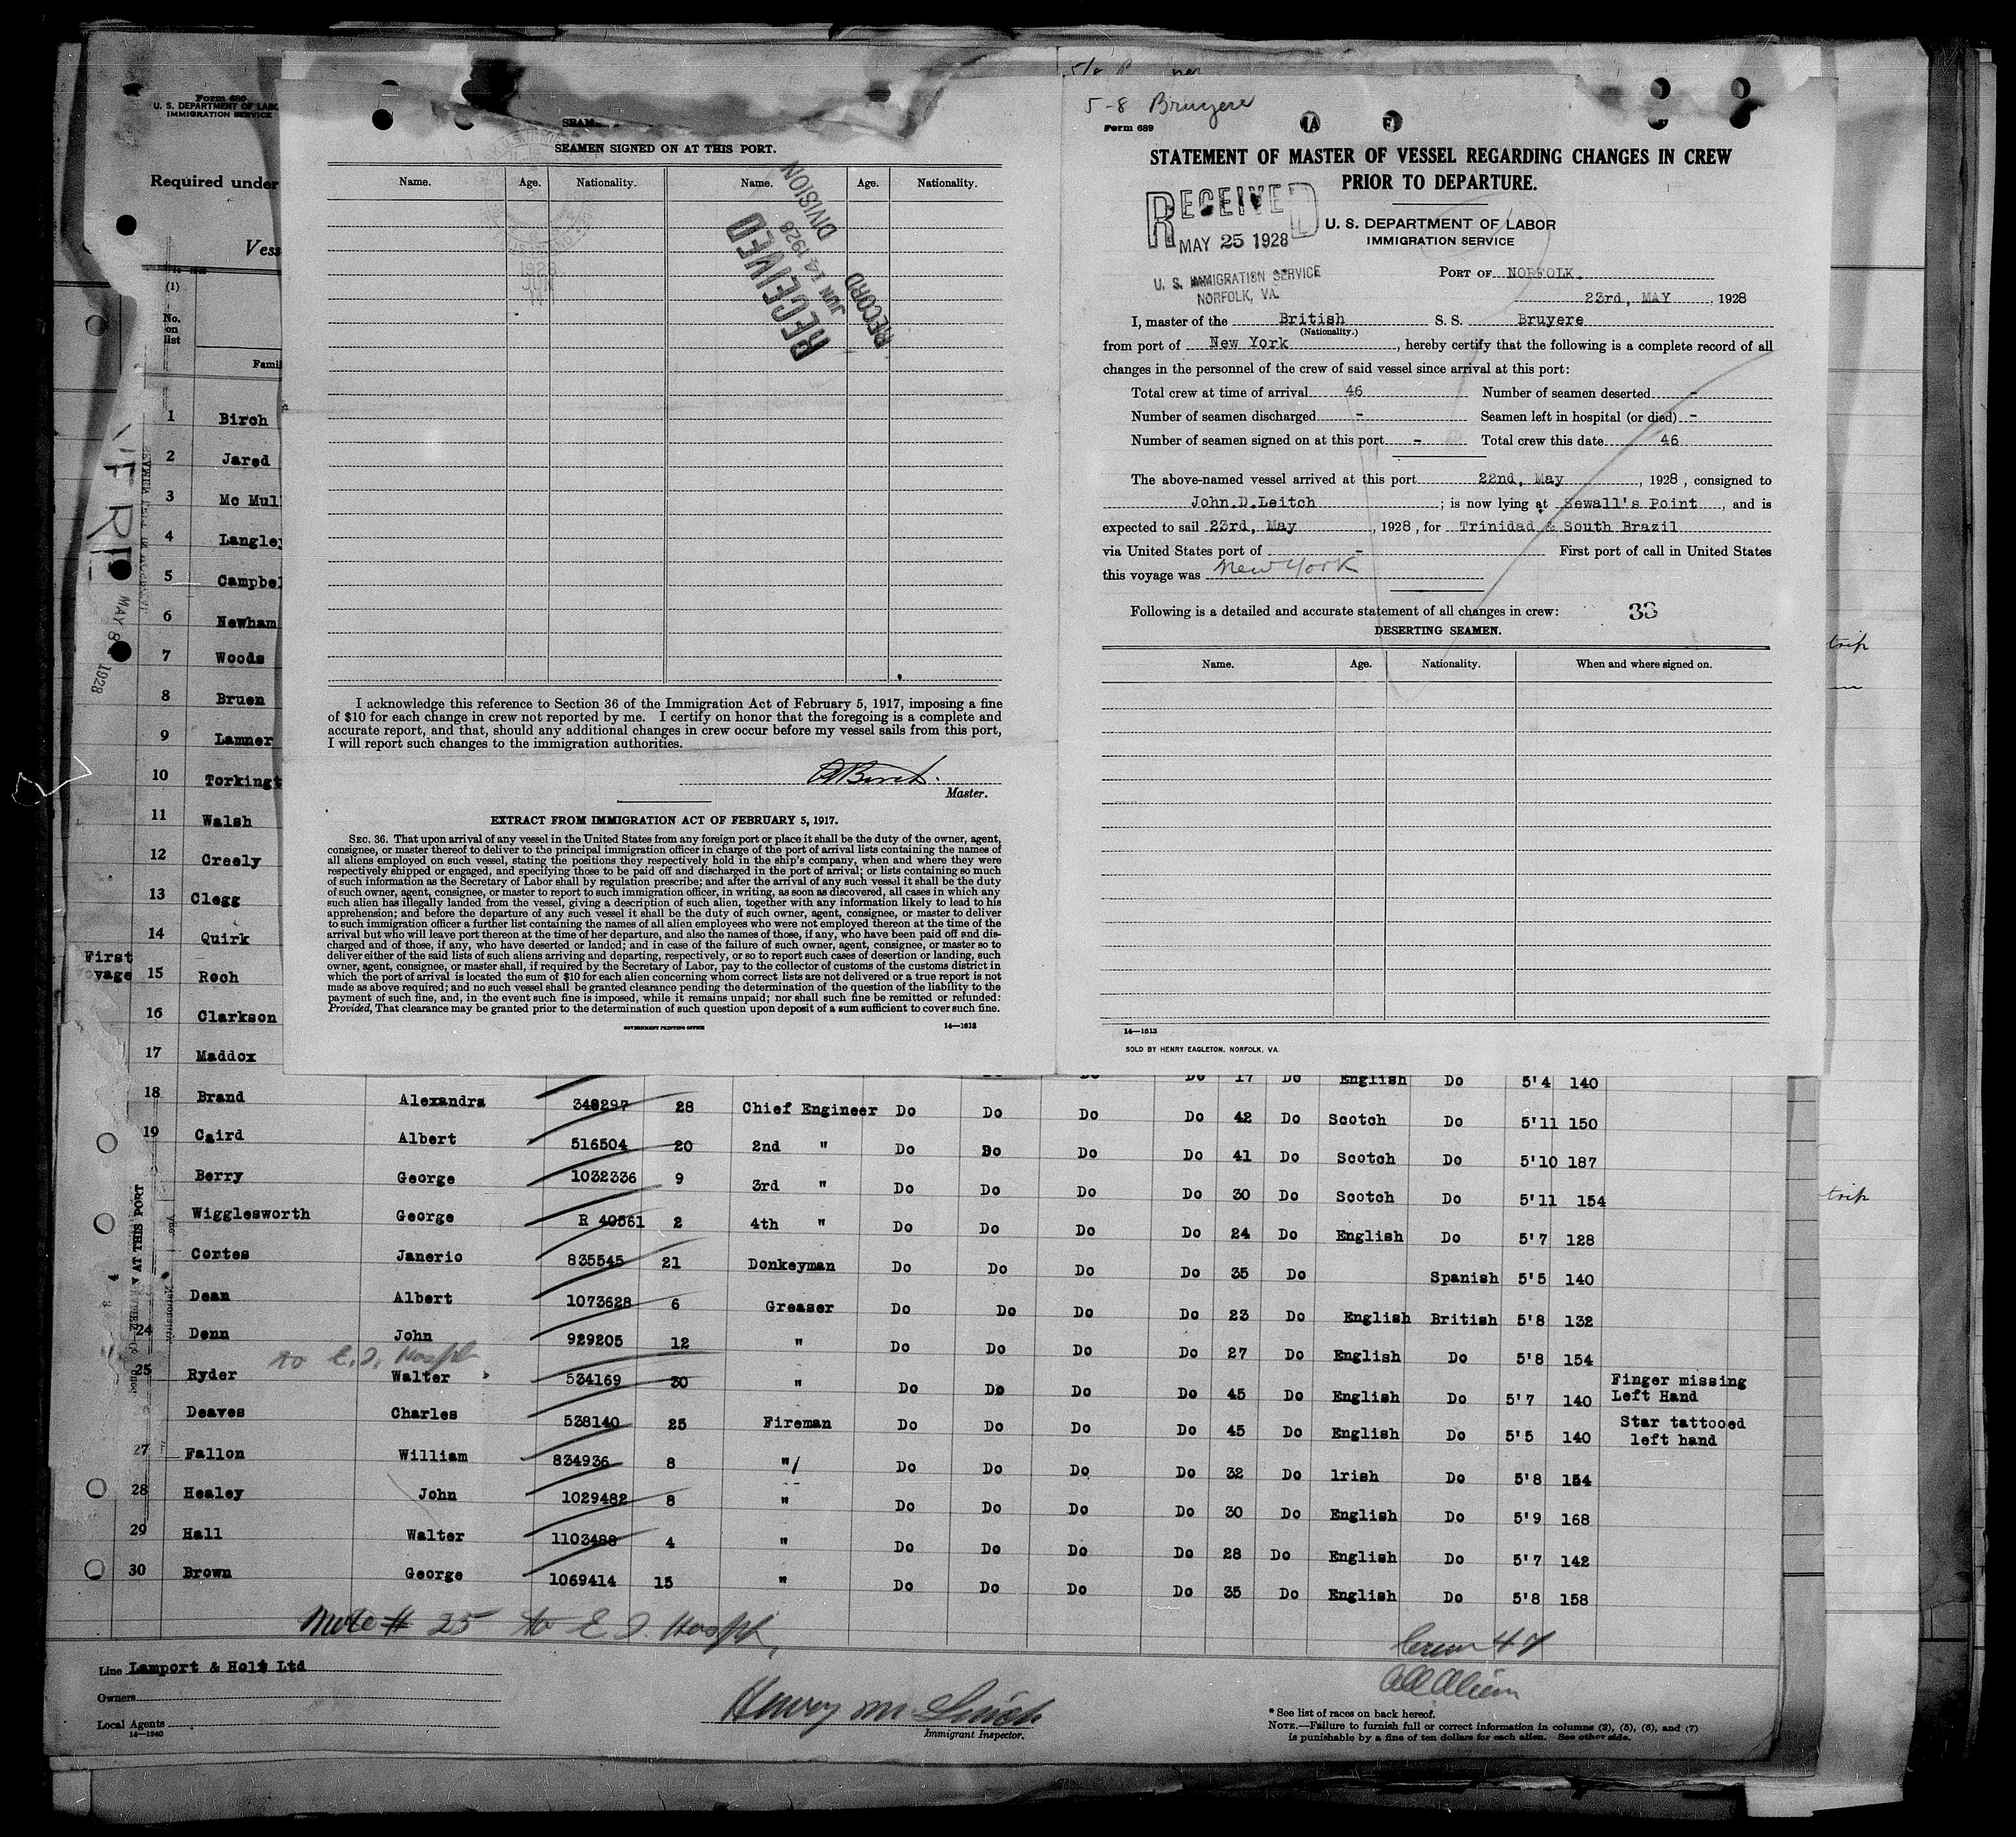 Form 689
U. S. DEPARTMENT OF LABO
IMMIGRATION SERVICE
Required under
Vess
(1)
No.
on
list
Famil
1 Birch
2 Jared
3 Mc Mul
4 Langley
5 Campbel
6 Newham
7 Woods
8 Bruen
9 Lamner
10 Torkingt
11 Walsh
12 Creely
13 Clegg
14 Quirk
First
voyage 15 Roch
16 Clarkson
17 Maddox
MAY 8 1928
SEAM
SEAMEN SIGNED ON AT THIS PORT.
Name. Age. Nationality. Name. Age. Nationality.
1928
JUN
14
RECEIVED
JUN 14 1928
RECORD DIVISION
I acknowledge this reference to Section 36 of the Immigration Act of February 5, 1917, imposing a fine
of $10 for each change in crew not reported by me. I certify on honor that the foregoing is a complete and
accurate report, and that, should any additional changes in crew occur before my vessel sails from this port,
I will report such changes to the immigration authorities.
Master.
EXTRACT FROM IMMIGRATION ACT OF FEBRUARY 5, 1917.
SEC. 36. That upon arrival of any vessel in the United States from any foreign port or place it shall be the duty of the owner, agent,
consignee, or master thereof to deliver to the principal immigration officer in charge of the port of arrival lists containing the names of
all aliens employed on such vessel, stating the positions they respectively hold in the ship's company, when and where they were
respectively shipped or engaged, and specifying those to be paid off and discharged in the port of arrival; or lists containing so much
of such information as the Secretary of Labor shall by regulation prescribe; and after the arrival of any such vessel it shall be the duty
of such owner, agent, consignee, or master to report to such immigration officer, in writing, as soon as discovered, all cases in which any
such alien has illegally landed from the vessel, giving a description of such alien, together with any information likely to lead to his
apprehension; and before the departure of any such vessel it shall be the duty of such owner, agent, consignee, or master to deliver
to such immigration officer a further list containing the names of all alien employees who were not employed thereon at the time of the
arrival but who will leave port thereon at the time of her departure, and also the names of those, if any, who have been paid off and dis-
charged and of those, if any, who have deserted or landed; and in case of the failure of such owner, agent, consignee, or master so to
deliver either of the said lists of such aliens arriving and departing, respectively, or so to report such cases of desertion or landing, such
owner, agent, consignee, or master shall, if required by the Secretary of Labor, pay to the collector of customs of the customs district in
which the port of arrival is located the sum of $10 for each alien concerning whom correct lists are not delivered or a true report is not
made as above required; and no such vessel shall be granted clearance pending the determination of the question of the liability to the
payment of such fine, and, in the event such fine is imposed, while it remains unpaid; nor shall such fine be remitted or refunded:
Provided, That clearance may be granted prior to the determination of such question upon deposit of a sum sufficient to cover such fine.
GOVERNMENT PRINTING OFFICE 14—1613
5-8 Bruyere
Form 689
STATEMENT OF MASTER OF VESSEL REGARDING CHANGES IN CREW
PRIOR TO DEPARTURE.
RECEIVED
MAY 25 1928
U. S. IMMIGRATION SERVICE
NORFOLK, VA.
U. S. DEPARTMENT OF LABOR
IMMIGRATION SERVICE
PORT OF NORFOLK.
23rd, MAY, 1928
I, master of the British S. S. Bruyere
(Nationality.)
from port of New York, hereby certify that the following is a complete record of all
changes in the personnel of the crew of said vessel since arrival at this port:
Total crew at time of arrival 46 Number of seamen deserted -
Number of seamen discharged - Seamen left in hospital (or died) -
Number of seamen signed on at this port - Total crew this date 46
The above-named vessel arrived at this port 22nd, May, 1928, consigned to
John.D.Leitch; is now lying at Sewall's Point, and is
expected to sail 23rd, May, 1928, for Trinidad & South Brazil
via United States port of - First port of call in United States
this voyage was New York
Following is a detailed and accurate statement of all changes in crew: 33
DESERTING SEAMEN.
Name. Age. Nationality. When and where signed on.
14—1613
SOLD BY HENRY EAGLETON, NORFOLK, VA.
trip
trip
Do 17 Do English Do 5'4 140
18 Brand Alexandra 348297 28 Chief Engineer Do Do Do Do 42 Do Scotch Do 5'11 150
19 Caird Albert 516504 20 2nd " Do Do Do Do 41 Do Scotch Do 5'10 187
Berry George 1032336 9 3rd " Do Do Do Do 30 Do Scotch Do 5'11 154
Wigglesworth George R 40561 2 4th " Do Do Do Do 24 Do English Do 5'7 128
Cortes Janerio 835545 21 Donkeyman Do Do Do Do 35 Do Spanish 5'5 140
Dean Albert 1073628 6 Greaser Do Do Do Do 23 Do English British 5'8 132
24 Denn John 929205 12 " Do Do Do Do 27 Do English Do 5'8 154
to E.I. Hospt
25 Ryder Walter 534169 30 " Do Do Do Do 45 Do English Do 5'7 140 Finger missing Left Hand
Deaves Charles 538140 25 Fireman Do Do Do Do 45 Do English Do 5'5 140 Star tattooed left hand
27 Fallon William 834936 8 " Do Do Do Do 32 Do Irish Do 5'8 154
28 Healey John 1029482 8 " Do Do Do Do 30 Do English Do 5'9 168
29 Hall Walter 1103488 4 " Do Do Do Do 28 Do English Do 5'7 142
30 Brown George 1069414 15 " Do Do Do Do 35 Do English Do 5'8 158
AT THIS PORT
Note # 25 to E.I. Hospt,
Crew 47
All Alien
Line Lamport & Holt Ltd
Owners
Local Agents
14—1240
Immigrant Inspector.
* See list of races on back hereof.
NOTE.—Failure to furnish full or correct information in columns (2), (5), (6), and (7)
is punishable by a fine of ten dollars for each alien. See other side.